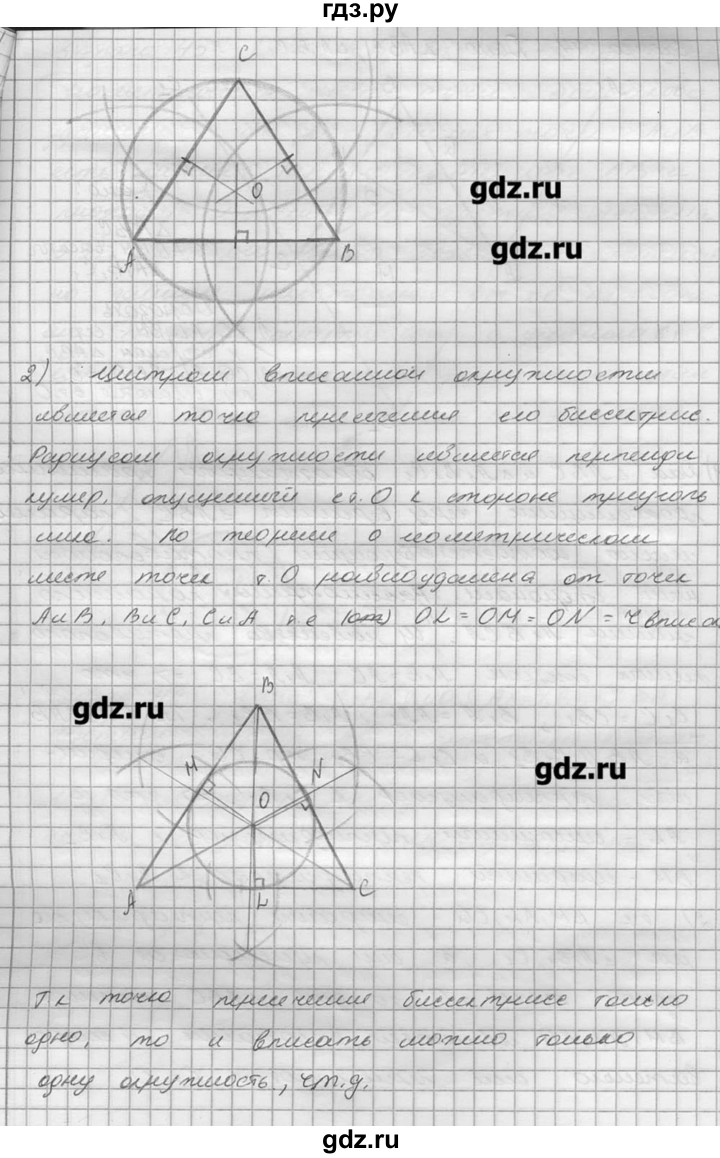 гдз.ру
C
O
gdz.ru
gdz.ru
A
B
2) Центром вписанной окружности
является точка пересечения его биссектрис.
Радиусом окружности является перпенди
куляр, опущенный с т. О к стороне треуголь
ника. По теореме о геометрическом
месте точек т. О равноудалена от точек
А и В, В и С, С и А т.е OL = OM = ON = r впис
B
gdz.ru
M
N
gdz.ru
O
A
L
C
Т к точка пересечения биссектрисс только
одна, то и вписать можно только
одну окружность, ч.т.д.
gdz.ru